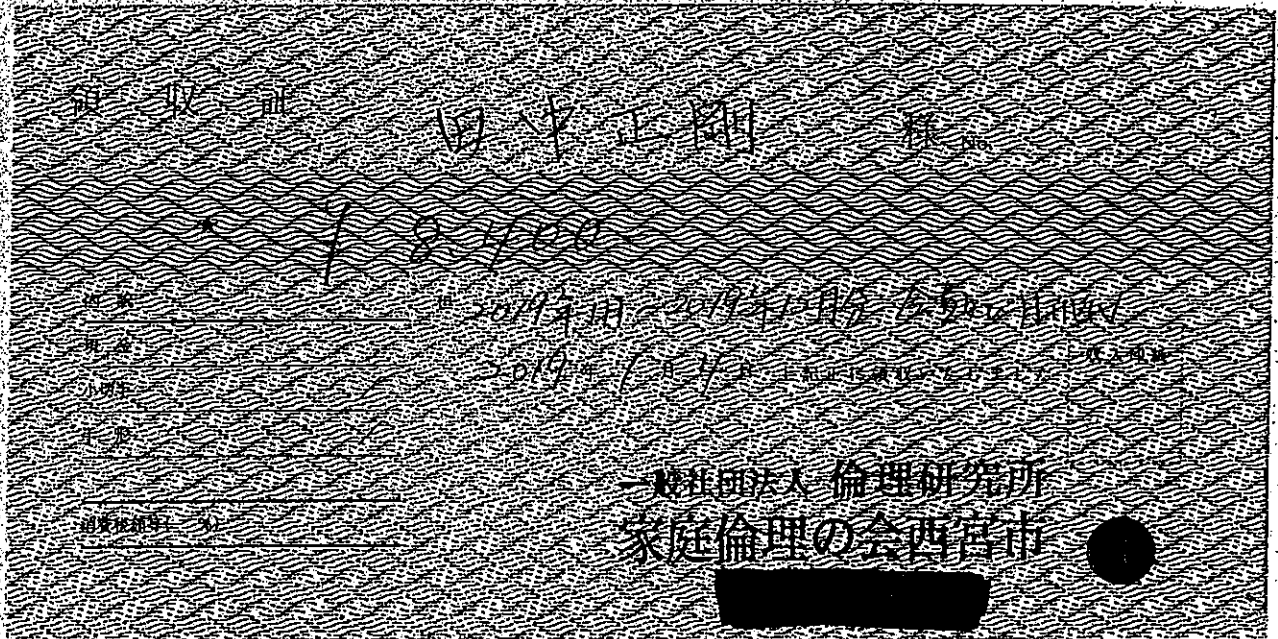 領収証 田中正剛 様 No.
★ ¥8,400
内訳 但 2019年1月〜2019年12月分 会費
現金 2019年1月4日 上記正に領収いたしました 収入印紙
小切手
手形
消費税額等( %)
一般社団法人 倫理研究所
家庭倫理の会西宮市